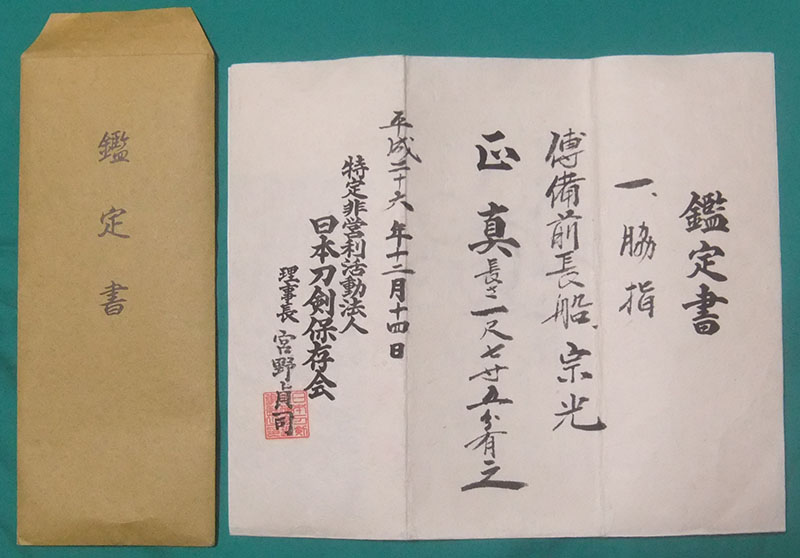 鑑定書
鑑定書
一、脇指
傳備前長船、宗光
正真 長さ一尺七寸五分有之
平成二十六年十二月十四日
特定非営利活動法人
日本刀剣保存会
理事長 宮野貞司